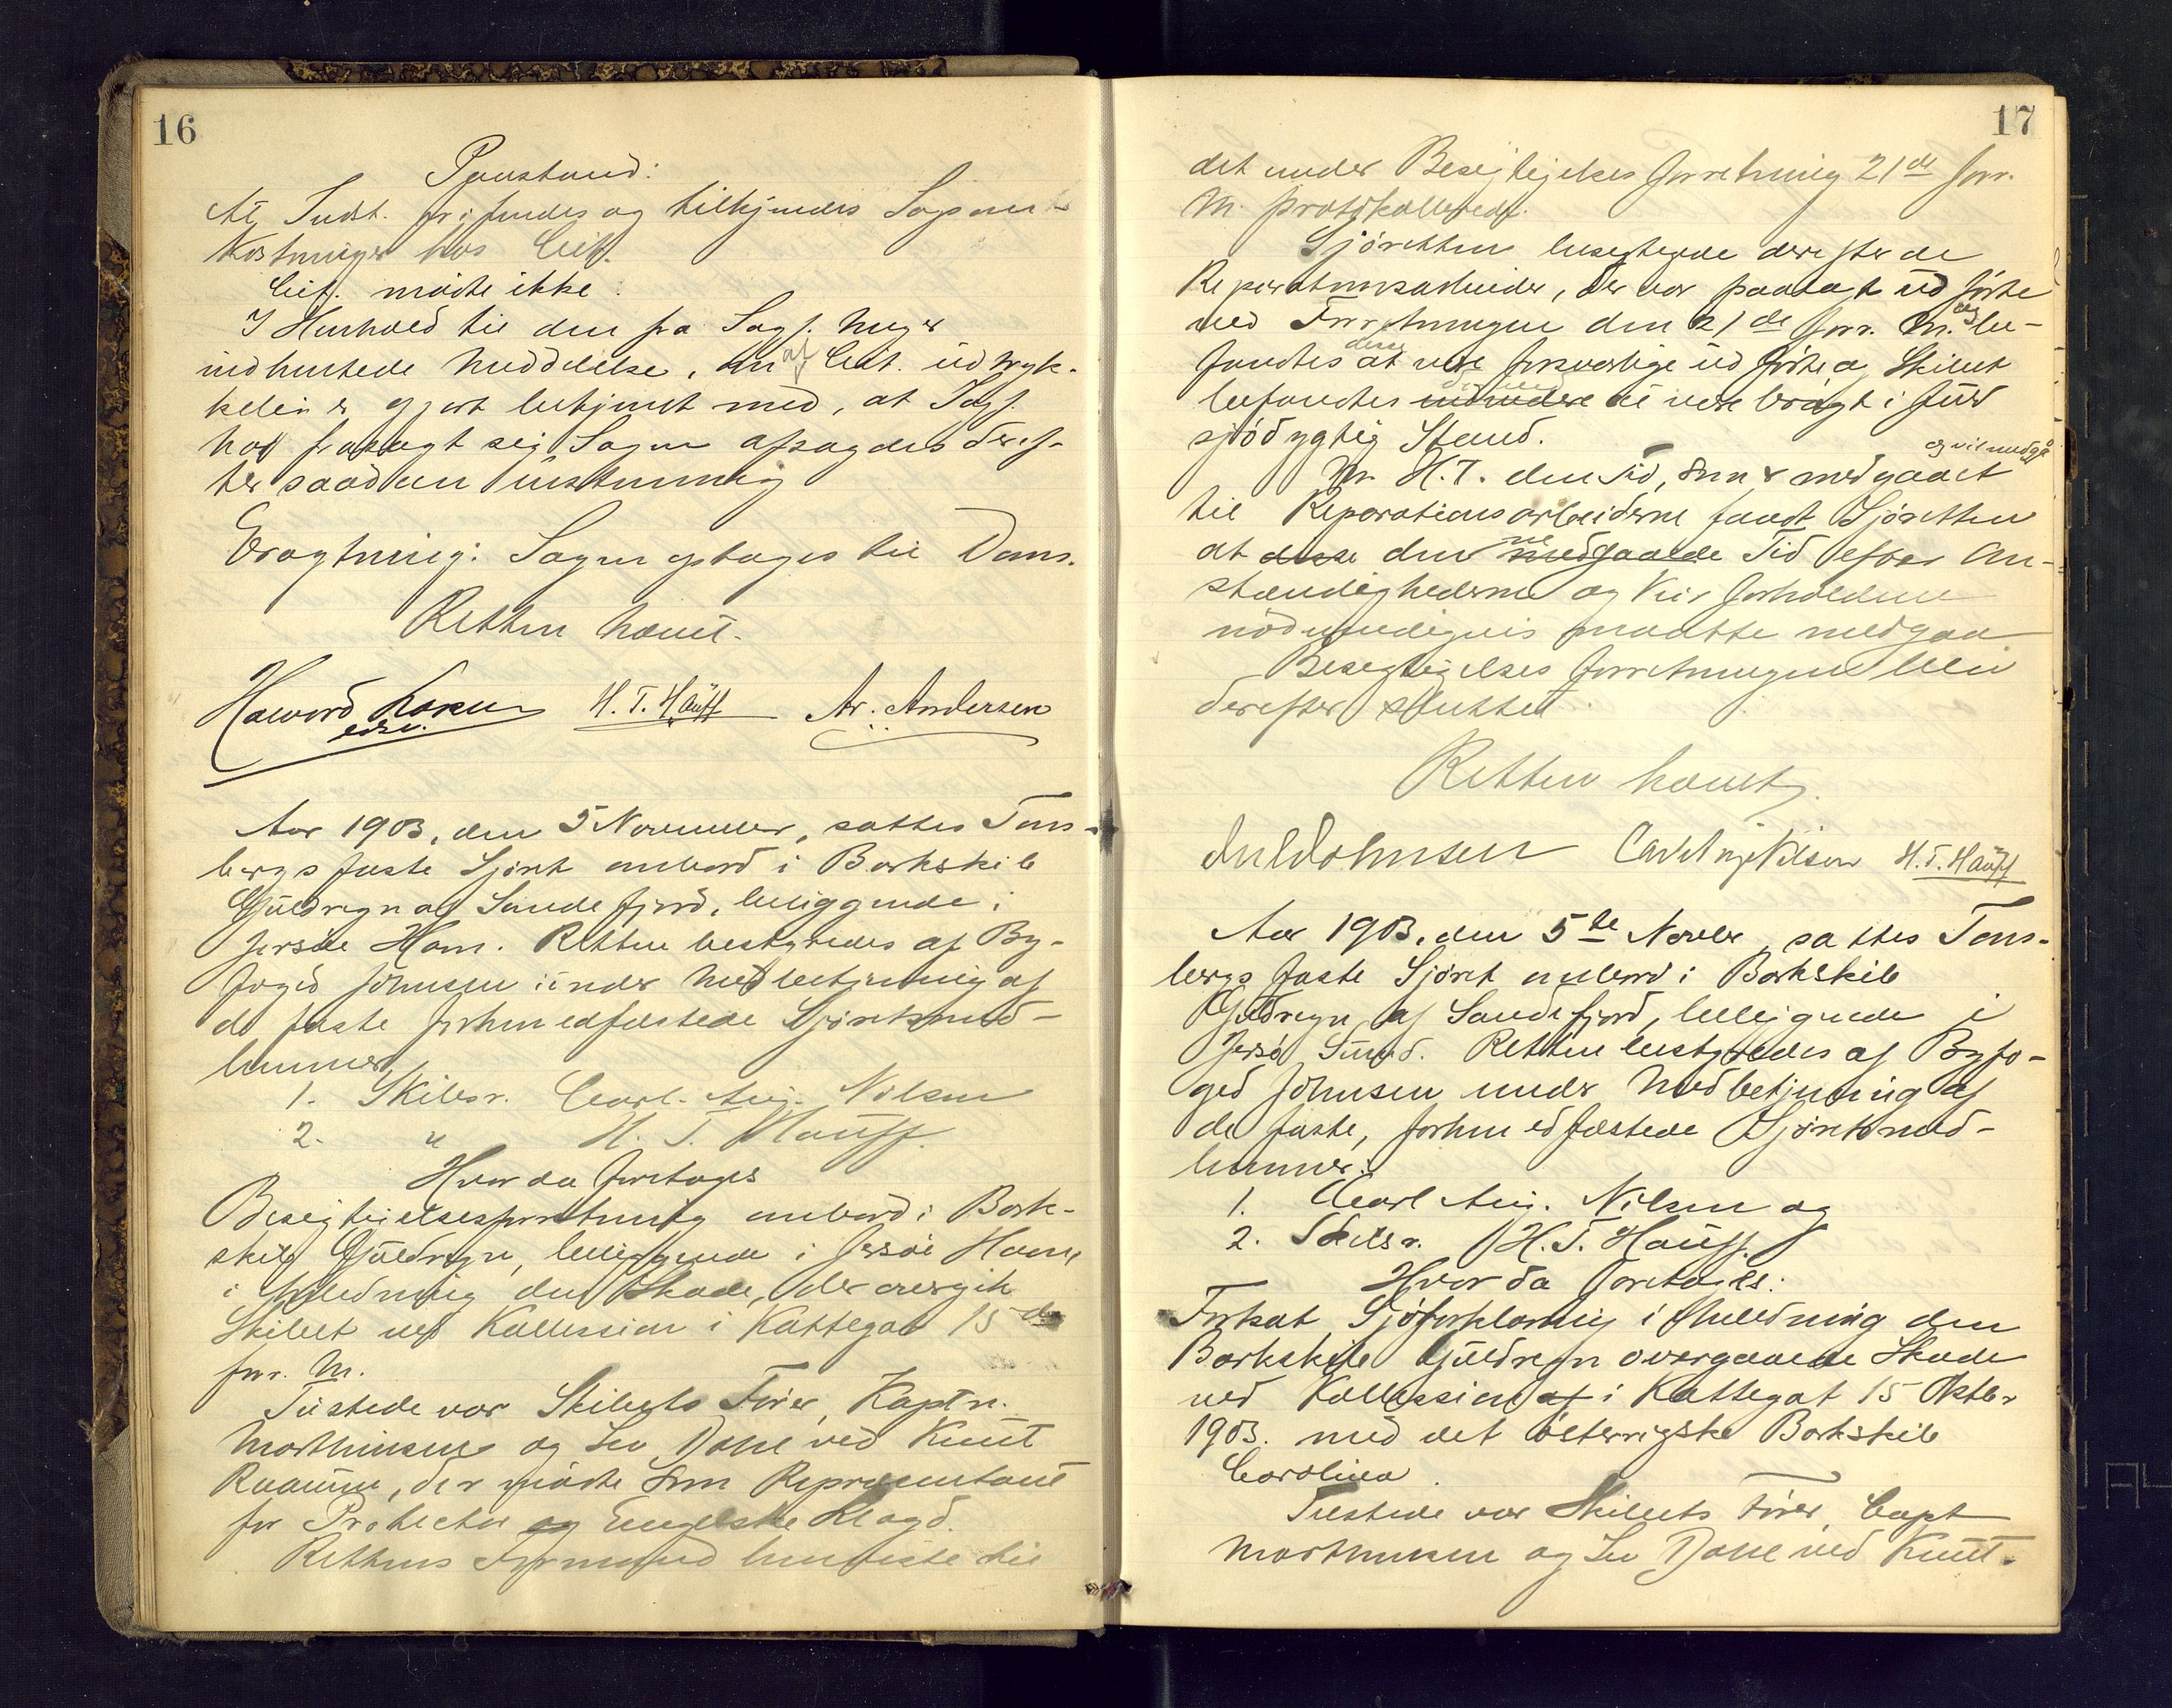 16
Paastand:
At Indst. frifindes og tilkjendes Sagsom-
kostninger hos Cit.
Cit. mødte ikke.
I Henhold til den fra Sagf. Unger
indhentede Meddelelse, om at Cit. udtryk-
kelig er gjort bekjent med, at Sagf.
har frasagt sig Sagen afsagdes deref-
ter saadan Kjendelse
Eragtning: Sagen optages til Dom.
Retten hævet.
Haword Larsen H. T. Hauff Ar. Andersen
edsv.
Aar 1903, den 5 November, sattes Tøns-
bergs faste Sjøret ombord i Barkskib
Guldregn af Sandefjord, beliggende i
Jersøe Havn. Retten bestyredes af By-
foged Johnsen under Medbetjening af
de faste forhen edfæstede Sjøretsmed-
lemmer,
1. Skibsr. Carl. Aug. Nilsen
2. " H. T. Hauff.
Hvor da foretoges
Besigtigelsesforretning ombord i Bark-
skib Guldregn, beliggende i Jersøe Havn,
i Anledning den Skade, der overgik
Skibet ved Kollission i Kattegat 15de
forr. M.
Tilstede var Skibets Fører, Kaptn.
Morthensen og Lev Dahl ved Knut
Raaum, der mødte som Repræsentant
for Protector og Engelske Lloyd.
Rettens Formand henviste til
17
det under Besigtigelses forretning 21de forr.
M. protokollerede.
Sjøretten besigtigede derefter de
Reparationsarbeider, der var paalagt udførte
ved Forretningen den 21de forr. M. og be-
fandtes disse at være forsvarlige udførte og Skibet
befandtes at være bragt i fuld
sjødygtig Stand.
M. H. T. den Tid, som er medgaaet og vil medgå
til Reparationsarbeiderne fandt Sjøretten
at disse den medgaaede Tid efter Om-
stændighederne og Veir forholdene
nødvendigvis maatte medgaa
Besigtigelses forretningen blev
derefter sluttet.
Retten hævet.
Johnsen Carl Aug Nilsen H. T. Hauff
Aar 1903, den 5te Novbr, sattes Tøns-
bergs faste Sjøret ombord i Barkskib
Guldregn af Sandefjord, beliggende i
Jersø Sund. Retten bestyredes af Byfo-
ged Johnsen under Medbetjening af
de faste, forhen edfæstede Sjøretsmed-
lemmer:
1. Carl Aug. Nilsen og
2. Skibsr. H. T. Hauff.
Hvor da foretoges:
Fortsat Sjøforklaring i Anledning den
Barkskib Guldregn overgaaede Skade
ved Kollission af i Kattegat 15 Oktbr
1903. med det østerrigske Barkskib
Carolina.
Tilstede var Skibets Fører, Capt
Morthensen og Lev Dahl ved Knut